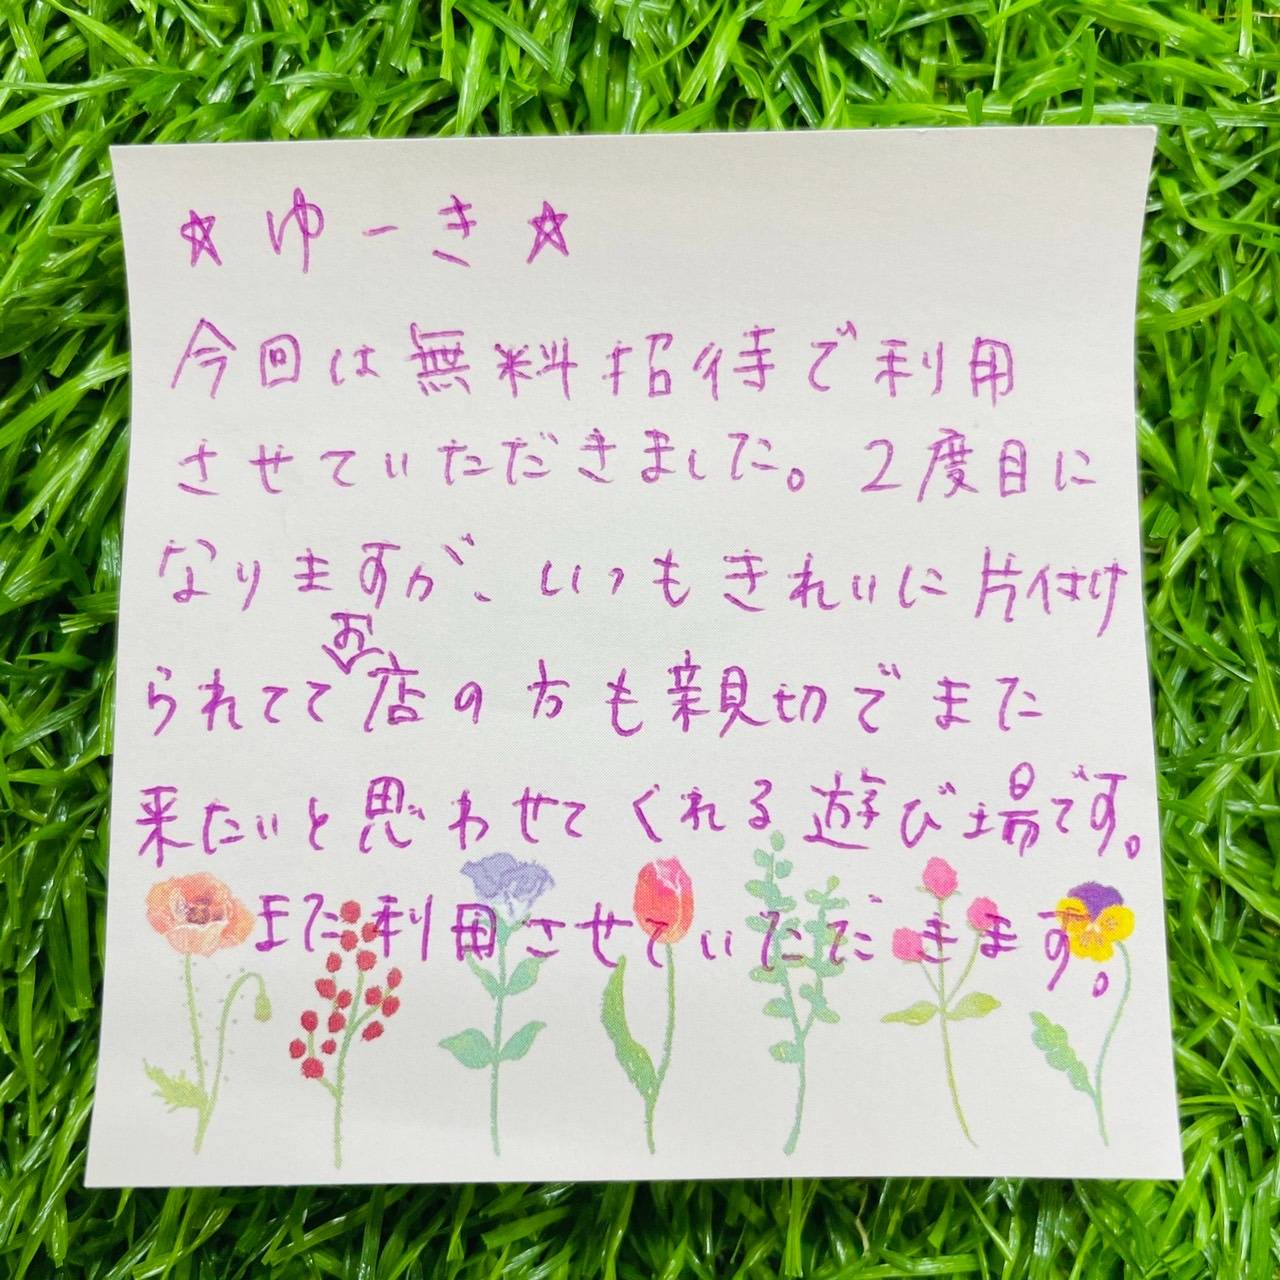 ☆ゆーき☆
今回は無料招待で利用
させていただきました。2度目に
なりますが、いつもきれいに片付け
られててお店の方も親切でまた
来たいと思わせてくれる遊び場です。
また利用させていただきます。